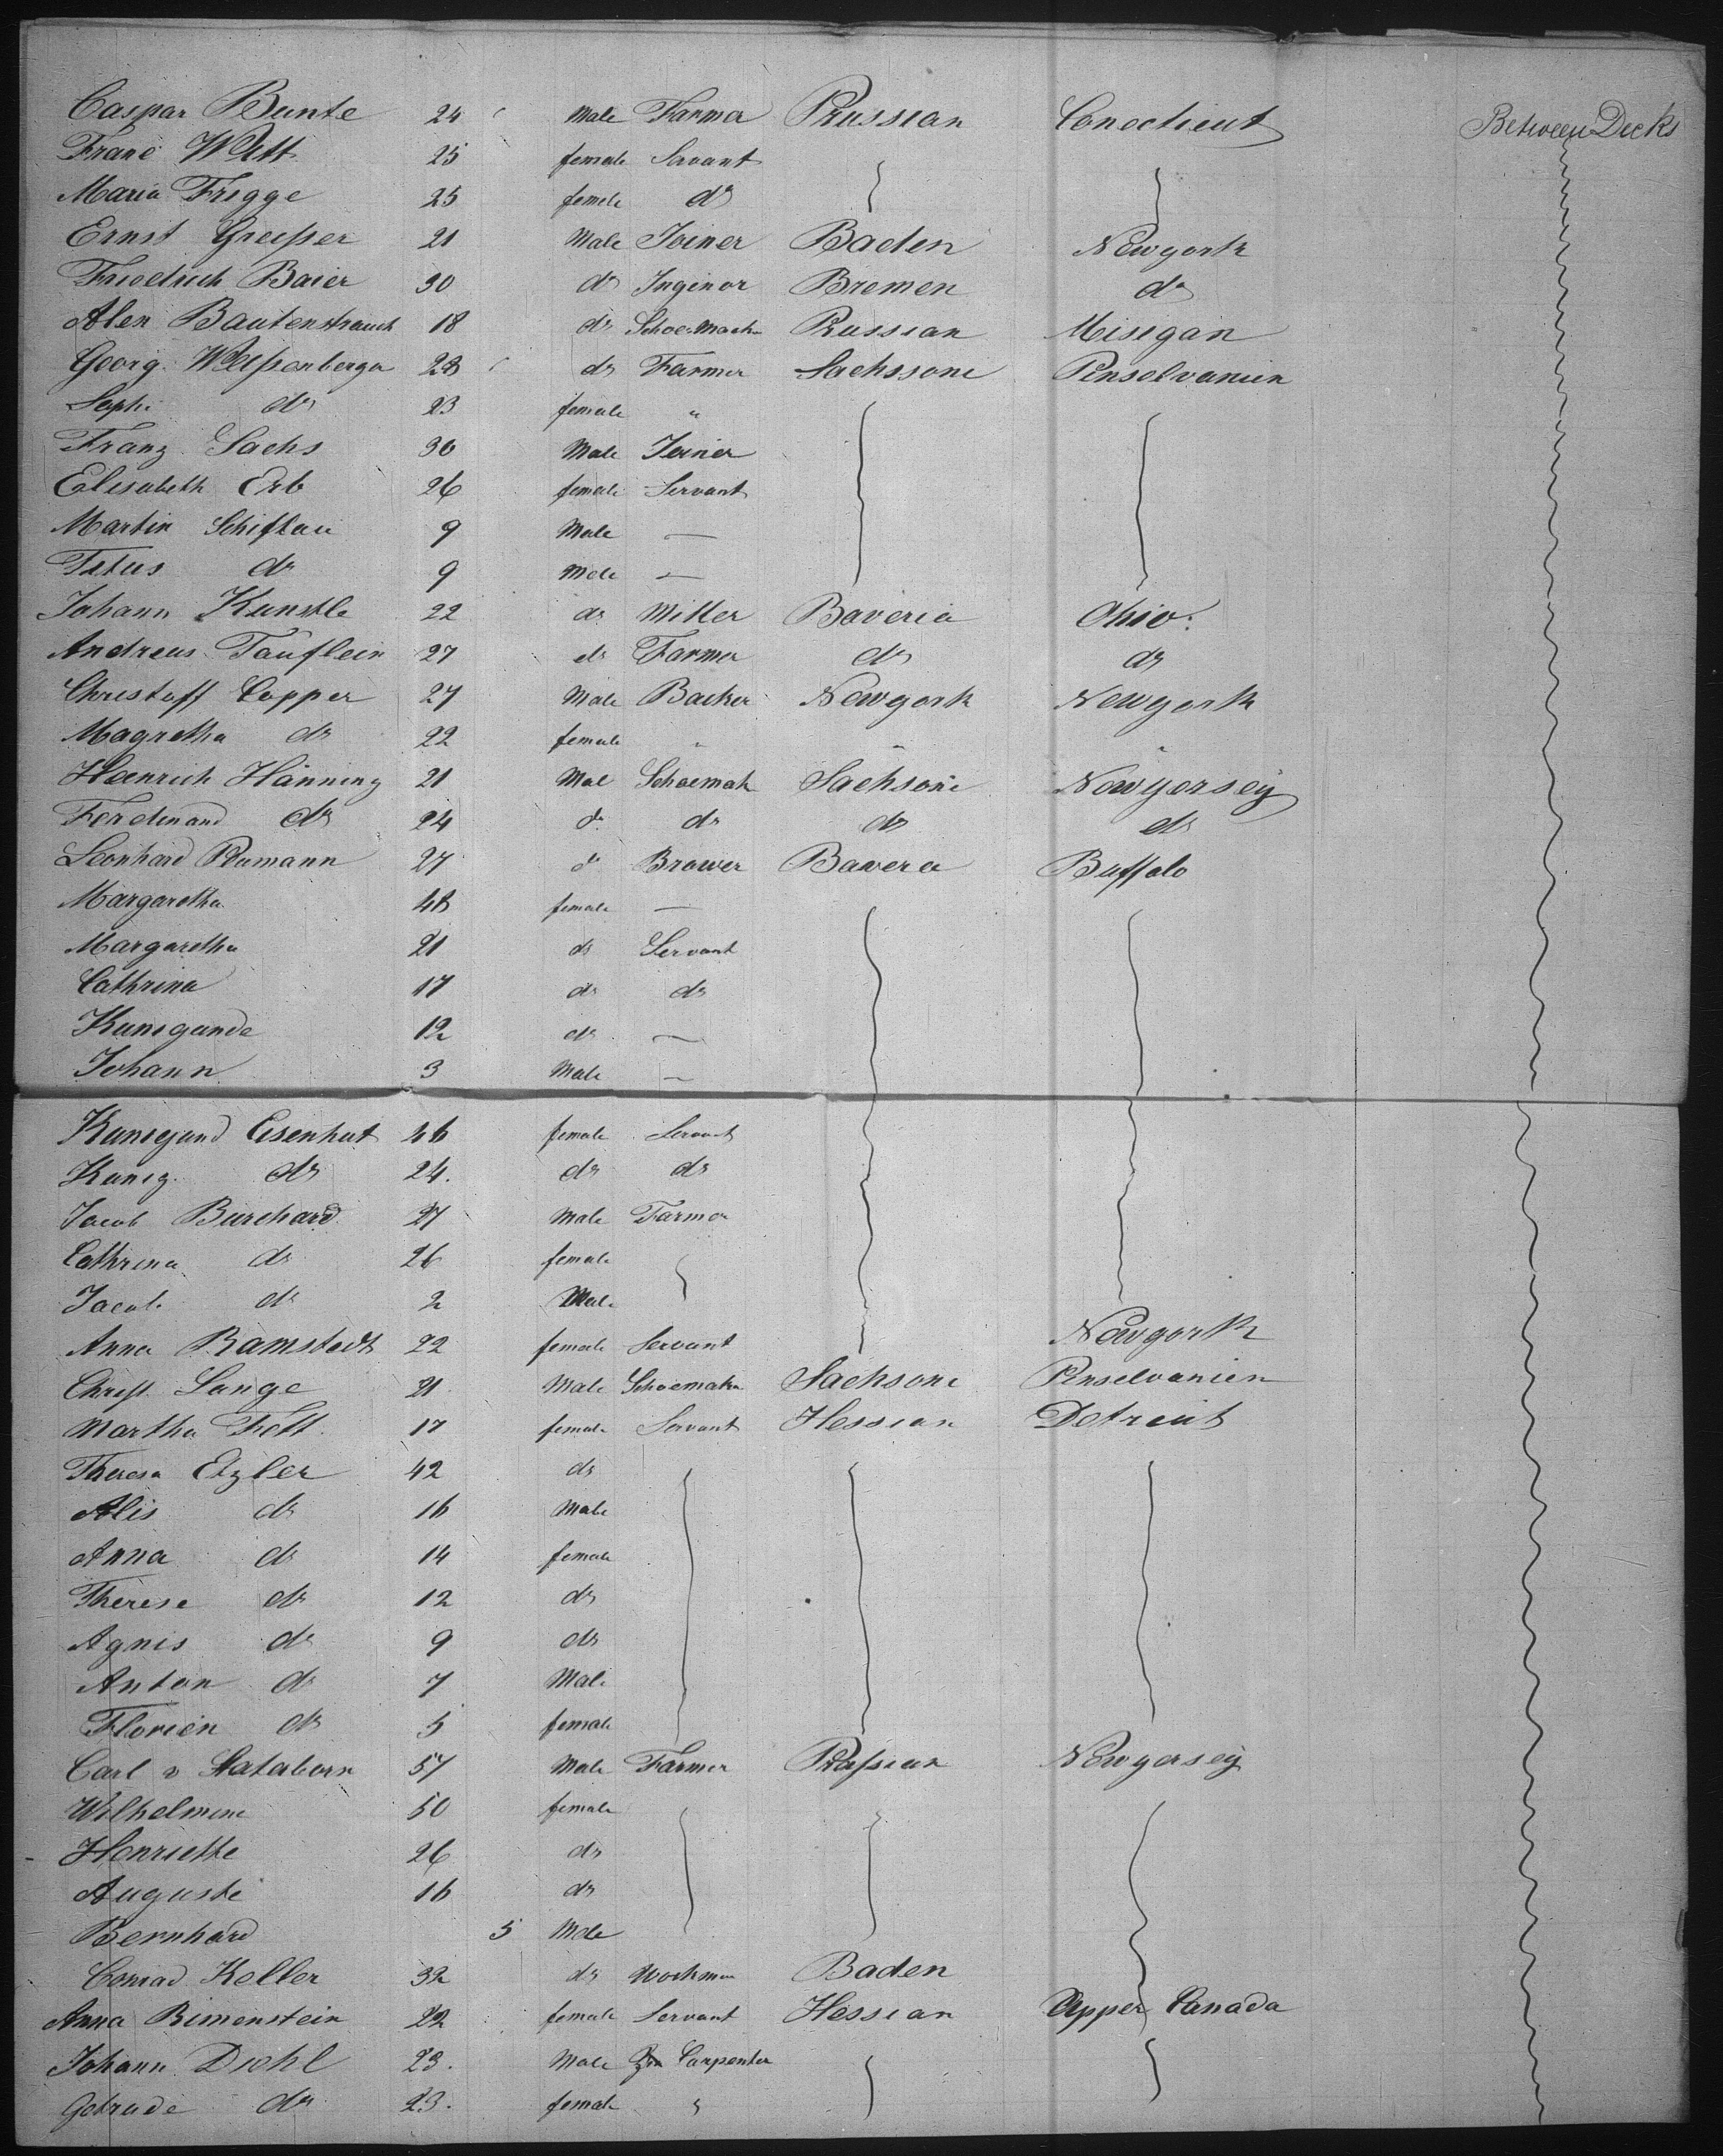 Caspar Bunte 24 Male Farmer Prussian Conecticut Between Decks
Franc Witt 25 female Servant
Maria Frigge 25 female do
Ernst Greißer 21 Male Joiner Baden Newyork
Friedrich Baier 30 do Inginor Bremen do
Alex Bautenstrauch 18 do Schoe Mach Prussian Misegan
Georg Weißenberger 28 do Farmer Sachssone Penselvanien
Sophi do 23 female "
Franz Sachs 30 Male Joiner
Elisabeth Erb 26 female Servant
Martin Schiflau 9 Male —
Titus do 9 Male —
Johann Kunstle 22 do Miller Baveria Ohio
Andreas Täuflein 27 do Farmer do do
Christoff Copper 27 Male Backer Newyork Newyork
Magretha do 22 female " " "
Heinrich Hänning 21 Mal Schoemak Sachsone Newyersey
Ferdinand do 24 do do do do
Leonhard Reumann 27 do Brower Bavera Buffalo
Margaretha 48 female —
Margaretha 21 do Servant
Cathrina 17 do do
Kunegunde 12 do —
Johann 3 Male —
Kunegund Eisenhut 46 female Servant
Kuneg. do 24. do do
Jacob Burchard 27 Male Farmer
Cathrina do 26 female
Jacob do 2 Male
Anna Ramstedt 22 female Servant Newyork
Christ. Lange 21 Male Schoemaker Sachsone Penselvanien
Martha Fett 17 female Servant Hessian Detreut
Theresa Etzler 42 do
Alis do 16 Male
Anna do 14 female
Therese do 12 do
Agnis do 9 do
Anton do 7 Male
Florien do 5 female
Carl v 57 Male Farmer Prußian Newyersey
Wilhelmine 50 female
Henriette 26 do
Auguste 16 do
Bernhard 5 Male
Conrad Keller 32 do Workman Baden
Anna Bimenstein 22 female Servant Hessian Upper Canada
Johann Diehl 23. Male Carpenter
Getrude do 23. female "